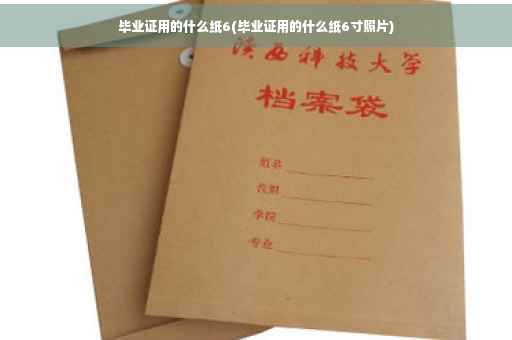 毕业证用的什么纸6(毕业证用的什么纸6寸照片)
陕西科技大学
档案袋
姓名
学院
专业